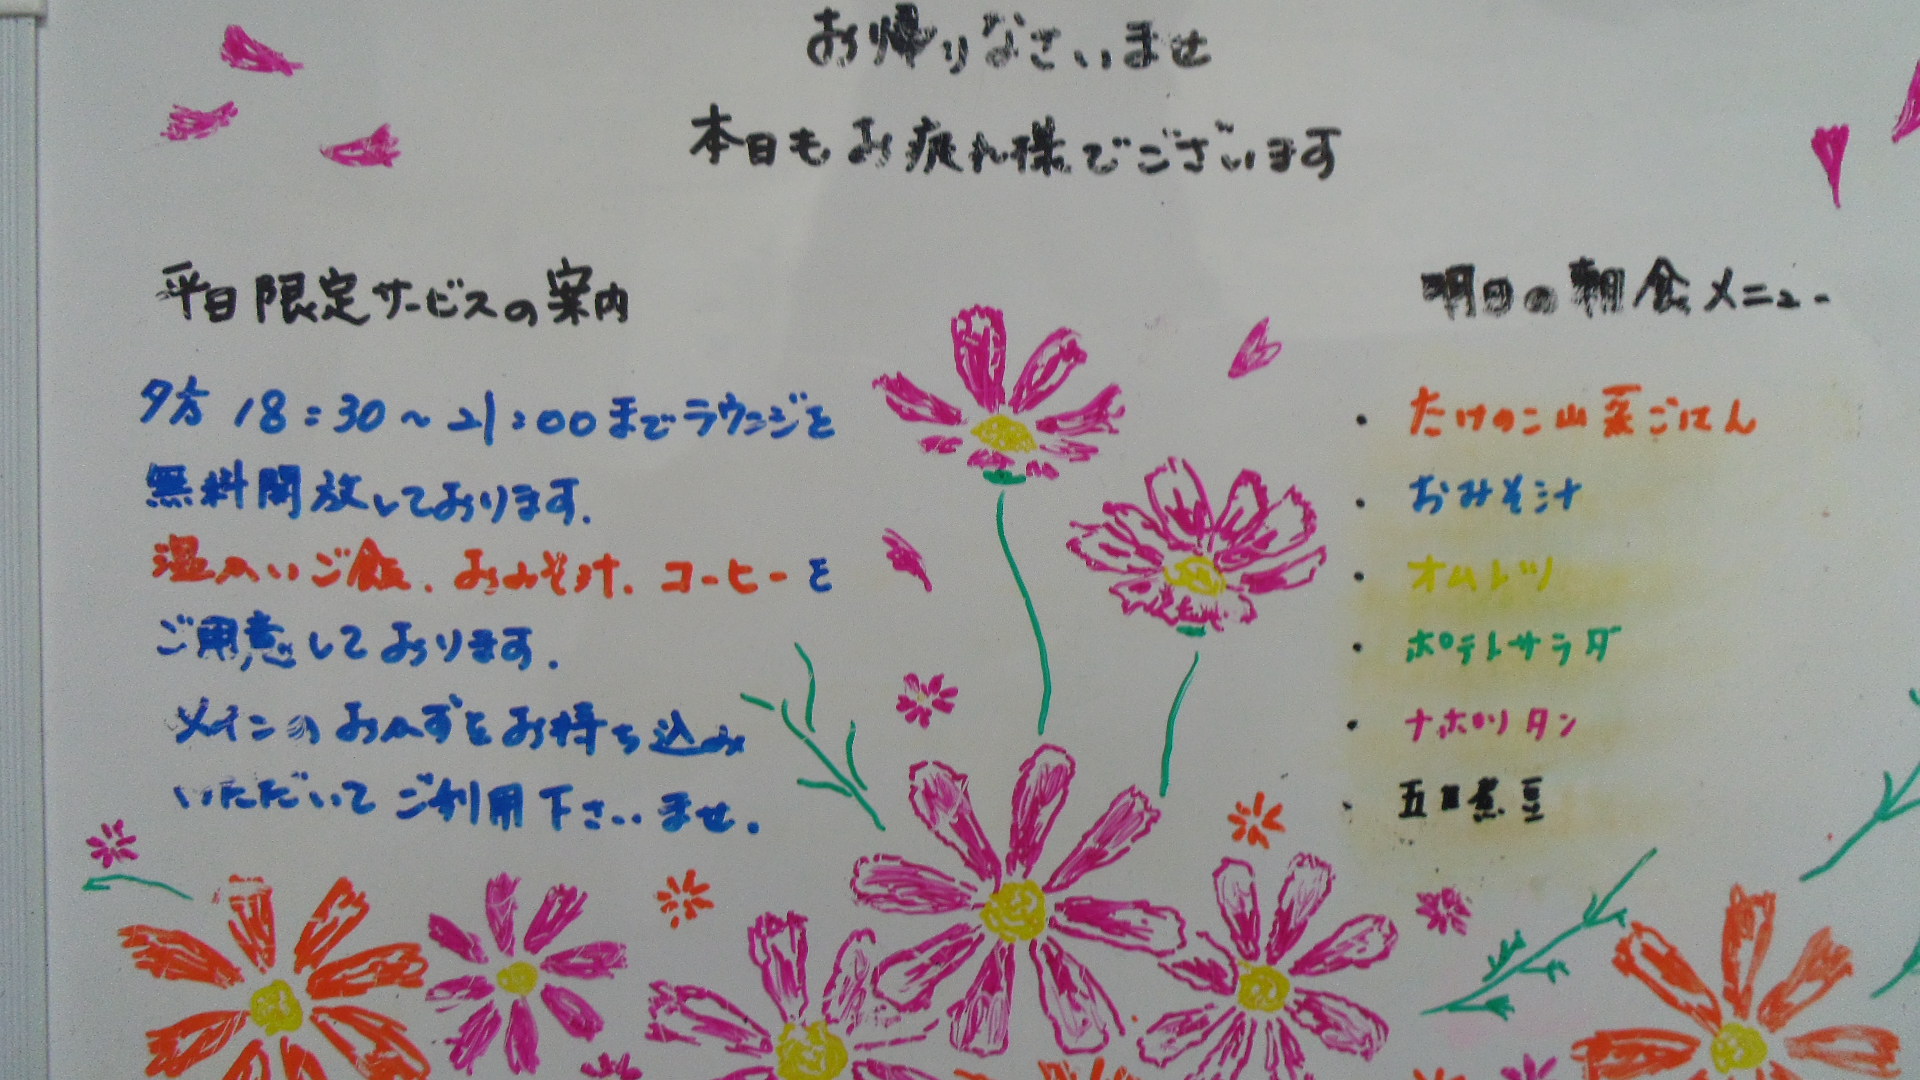 お帰りなさいませ
本日もお疲れ様でございます
平日限定サービスの案内
夕方 18:30~21:00までラウンジを
無料開放しております.
温かいご飯、おみそ汁、コーヒーを
ご用意しております.
メインのおかずをお持ち込み
いただいてご利用下さいませ.
明日の朝食メニュー
・たけのこ山菜ごはん
・おみそ汁
・オムレツ
・ポテトサラダ
・ナポリタン
・五目煮豆